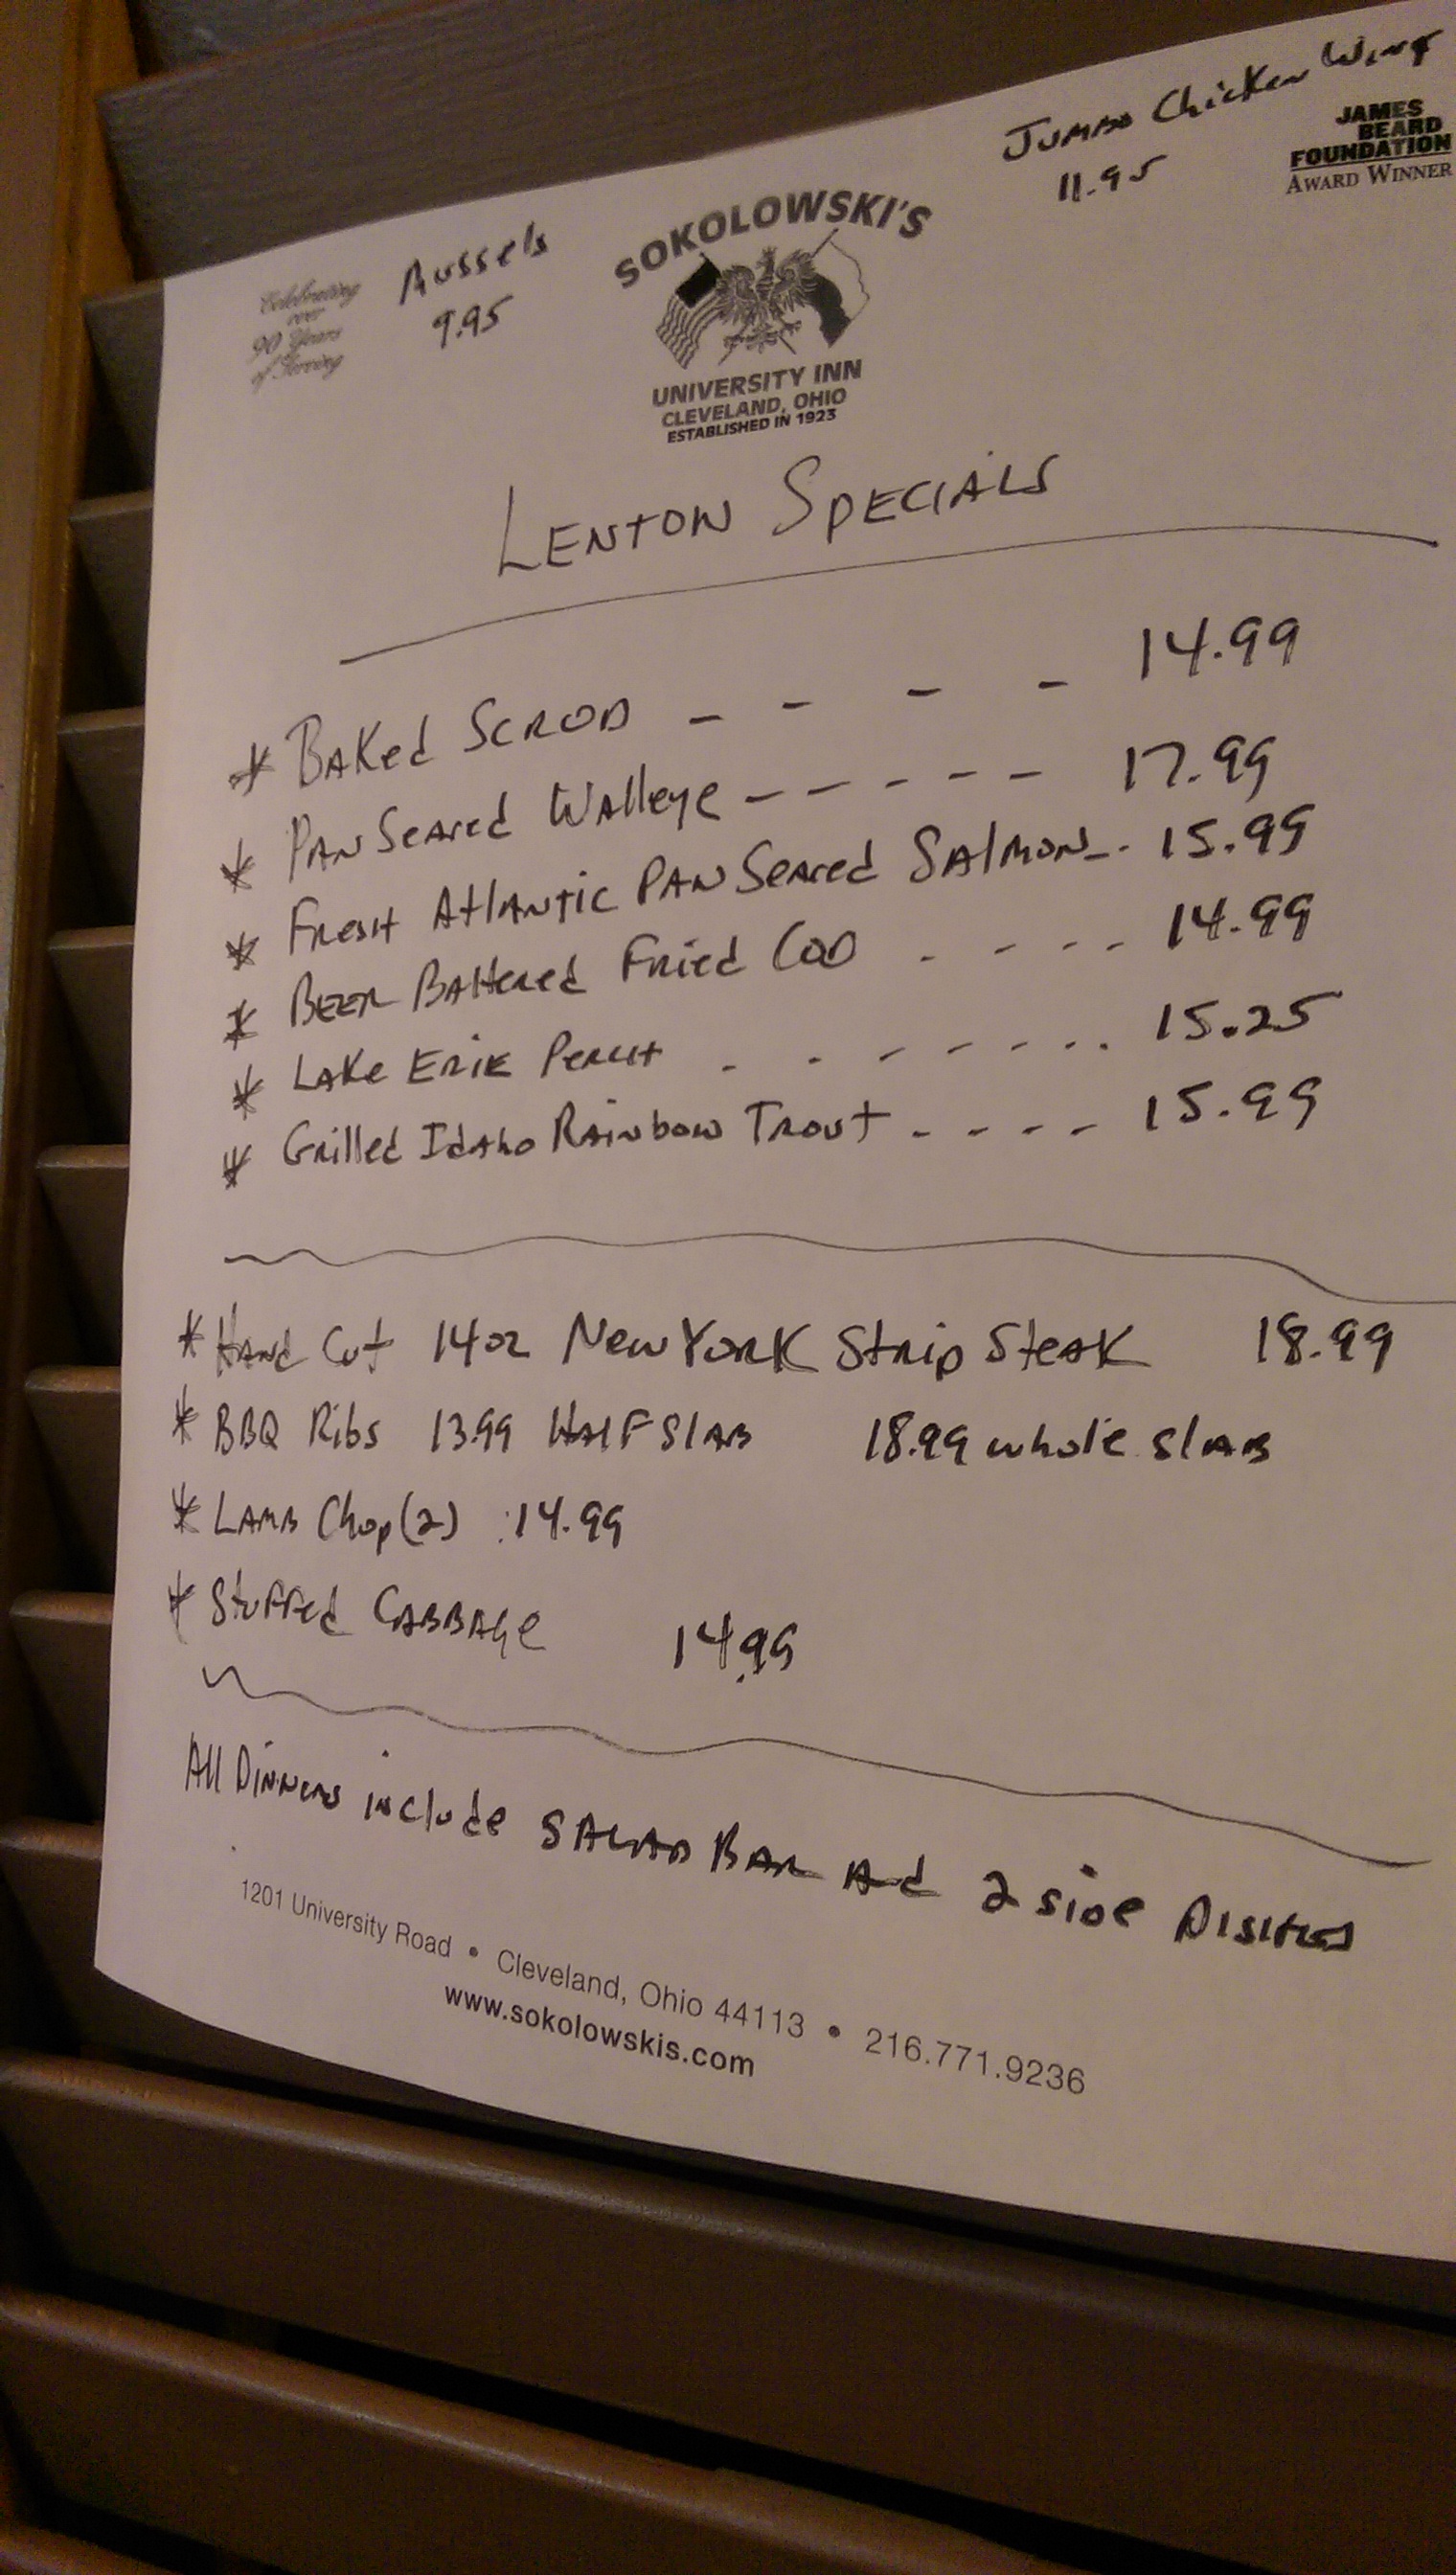 Jumbo Chicken Wings
11.95
JAMES
BEARD
FOUNDATION
AWARD WINNER
Celebrating
over
90 Years
of Serving
Mussels
9.95
SOKOLOWSKI'S
UNIVERSITY INN
CLEVELAND, OHIO
ESTABLISHED IN 1923
LENTON SPECIALS
* BAKed SCROD - - - - 14.99
* PAN Seared Walleye - - - - - 17.99
* FRESH Atlantic PAN Seared Salmon -- 15.99
* BEER Battered Fried COD - - - - 14.99
* LAKe ERIE PERCH - - - - - - - 15.25
* Grilled Idaho Rainbow Trout - - - - 15.99
* Hand Cut 14oz New York Strip Steak 18.99
* BBQ Ribs 13.99 Half Slab 18.99 whole slab
* LAMB Chop (2) 14.99
* Stuffed CABBAge 14.99
All Dinners include SALAD BAR And 2 side DISHES
1201 University Road • Cleveland, Ohio 44113 • 216.771.9236
www.sokolowskis.com